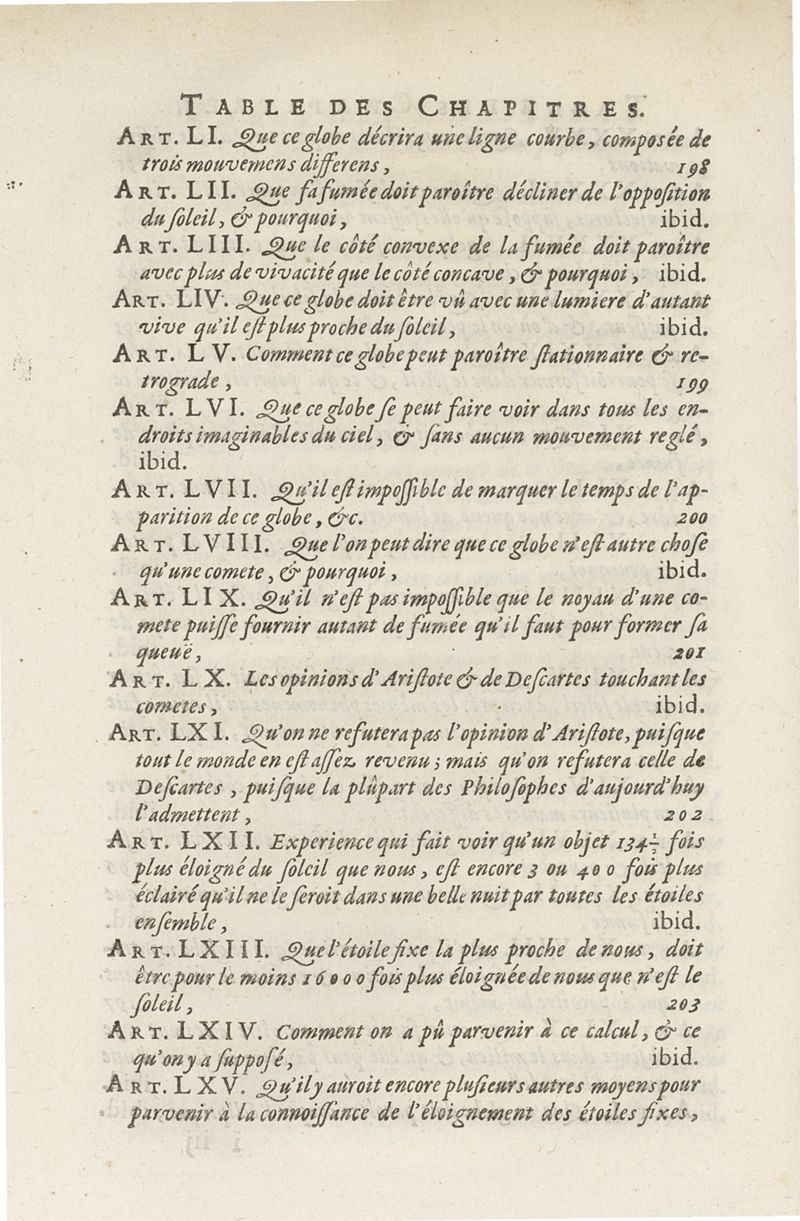 TABLE DES CHAPITRES.
ART. LI. Que ce globe décrira une ligne courbe, composée de
trois mouvemens differens, 198
ART. LII. Que ſa fumée doit paroître décliner de l'oppoſition
du ſoleil, & pourquoi, ibid.
ART. LIII. Que le côté convexe de la fumée doit paroître
avec plus de vivacité que le côté concave, & pourquoi, ibid.
ART. LIV. Que ce globe doit être vû avec une lumiere d'autant
vive qu'il eſt plus proche du ſoleil, ibid.
ART. LV. Comment ce globe peut paroître ſtationnaire & re-
trograde, 199
ART. LVI. Que ce globe ſe peut faire voir dans tous les en-
droits imaginables du ciel, & ſans aucun mouvement reglé,
ibid.
ART. LVII. Qu'il eſt impoſſible de marquer le temps de l'ap-
parition de ce globe, &c. 200
ART. LVIII. Que l'on peut dire que ce globe n'eſt autre choſe
qu'une comete, & pourquoi, ibid.
ART. LIX. Qu'il n'eſt pas impoſſible que le noyau d'une co-
mete puiſſe fournir autant de fumée qu'il faut pour former ſa
queuë, 201
ART. LX. Les opinions d'Ariſtote & de Deſcartes touchant les
cometes, ibid.
ART. LXI. Qu'on ne refutera pas l'opinion d'Ariſtote, puiſque
tout le monde en eſt aſſez revenu; mais qu'on refutera celle de
Deſcartes, puiſque la plûpart des Philoſophes d'aujourd'huy
l'admettent, 202
ART. LXII. Experience qui fait voir qu'un objet 134½ fois
plus éloigné du ſoleil que nous, eſt encore 3 ou 400 fois plus
éclairé qu'il ne le ſeroit dans une belle nuit par toutes les étoiles
enſemble, ibid.
ART. LXIII. Que l'étoile fixe la plus proche de nous, doit
être pour le moins 16000 fois plus éloignée de nous que n'eſt le
ſoleil, 203
ART. LXIV. Comment on a pû parvenir à ce calcul, & ce
qu'on y a ſuppoſé, ibid.
ART. LXV. Qu'il y auroit encore pluſieurs autres moyens pour
parvenir à la connoiſſance de l'éloignement des étoiles fixes,